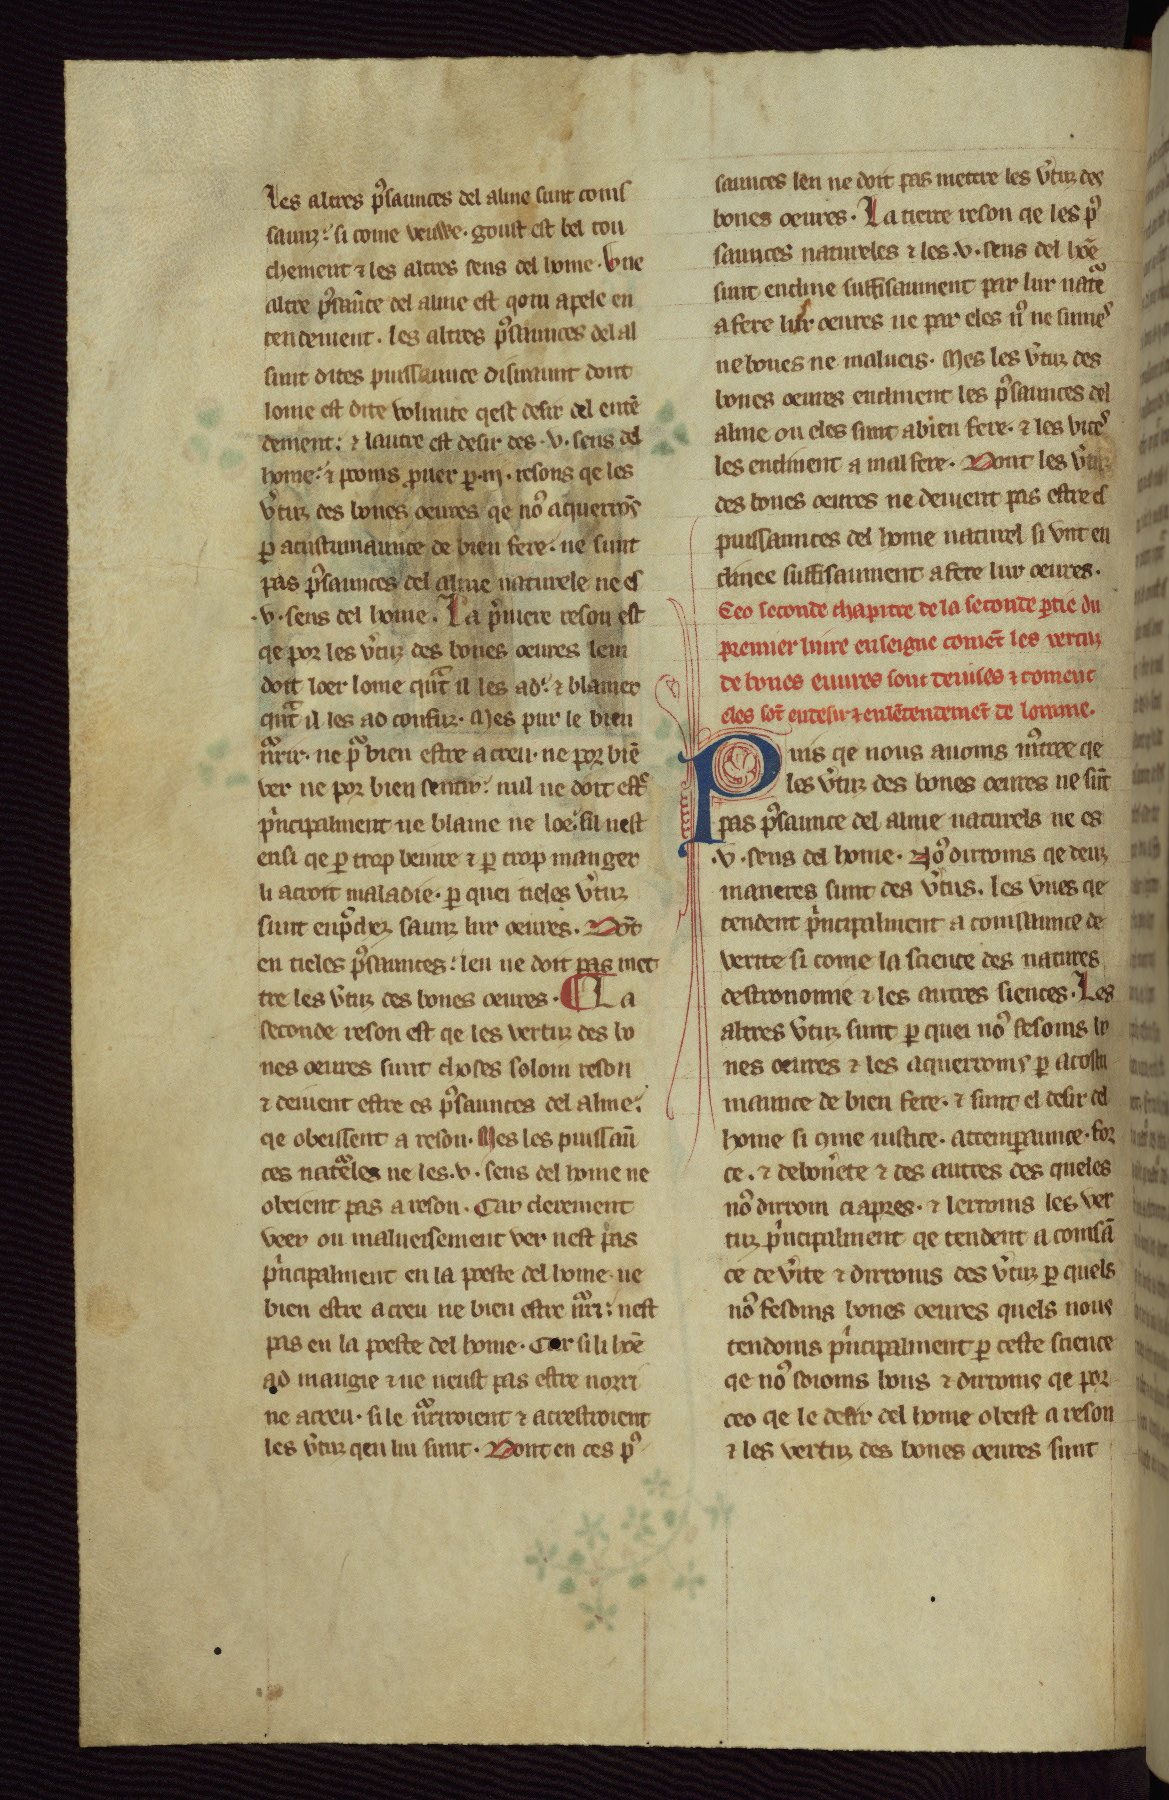 Les altres p͛saunces del alme sunt conis
saunz: si come veuwe. goust est bel tou
chement ⁊ les altres sens del home. Une
altre p͛saūce del alme est qom apele en
tendement. les altres p͛saunces del al
sunt dites puissaunce disiraunt dont
lome est dite volunte qest desir del entē
dement: ⁊ lautre est desir des .v. sens del
home: ⁊ prouer ꝑ .iij. resons qe les
v͛tuz des bones oeures qe nꝰ aquerrōs
ꝑ acustumaunce de bien fere. ne sunt
pas p͛saunces del alme naturele ne es
.v. sens del home. La p͛miere reson est
qe por les v͛tuz des bones oeures lem
doit loer lome qūt il les ad: ⁊ blamer
qūt il les ad confuz. Mes pur le bien
nr̄rir. ne pᵃ bien estre acreu. ne por biē
ver ne por bien sentir: nul ne doit est͛
p͛ncipalment ne blame ne loe: sil nest
ensi qe ꝑ trop beuure ⁊ ꝑ trop manger
li acroit maladie. ꝑ quei tieles v͛tuz
sunt saunz lur oeures. Dōt
en tieles p͛saunces: len ne doit pas met
tre les v͛tuz des bones oeures. La
seconde reson est qe les vertuz des bo
nes oeures sunt choses solom reson
⁊ deiuent estre es p͛saunces del alme:
qe obeissent a reson. Mes les puissaū
ces natᵃeles ne les .v. sens del home ne
obeient pas a reson. Car clerement
veer ou malueisement ver nest pas
p͛ncipalment en la poeste del home. ne
bien estre acreu ne bien estre nr̄ri: nest
pas en la poeste del home. Car si li hōe
ad mangie ⁊ ne neust pas estre norri
ne acreu. si le nr̄riroient ⁊ acrestroient
les v͛tuz qen lui sunt. Dont en ces p͛
saunces len ne doit pas mettre les v͛tuz des
bones oeures. La tierre reson qe les p͛
saunces natureles ⁊ les .v. sens del hōe
sunt encline suffisaument par lur natᵃe
a fere lur oeures ne par eles nꝰ ne sumeˢ
ne bones ne malueis. Mes les v͛tuz des
bones oeures enclinent les p͛saunces del
alme ou eles sunt a bien fere. ⁊ les viceˢ
les enclinent a mal fere. Dont les v͛tuz
des bones oeures ne deiuent pas estre es
puissaunces del home naturel si unt en
clinee suffisaument a fere lur oeures.
Ceo seconde chapitre de la seconde ꝑtie du
premier liure enseigne comēt les vertuz
de bones euures sont deuises ⁊ coment
eles sōt en desir ⁊ en lētendemēt de lomme.
Puis qe nous auoms mͦtree qe
les v͛tuz des bones oeures ne sūt
pas p͛saunce del alme naturels ne es
.v. sens del home. Nꝰ dirroms qe deuz
maneres sunt des v͛tus. les unes qe
tendent p͛ncipalment a conisaunce de
verite si come la science des natures
destronomie ⁊ les autres siences. Les
altres v͛tuz sunt ꝑ quei nꝰ fesoms bo
nes oeures ⁊ les aquerroms ꝑ acostu
maunce de bien fere. ⁊ sunt el desir del
home si cme iustice. attemꝑaunce. for
ce. ⁊ debonerete ⁊ des autres des queles
nꝰ dirrom ci apres. ⁊ lerroms les ver
tuz p͛ncipalment qe tendent a conisā
ce de v͛ite ⁊ dirroms des v͛tuz ꝑ quels
nꝰ fesoms bones oeures quels nous
tendoms p͛ncipalment ꝑ ceste science
qe nꝰ soioms bons ⁊ dirroms qe por
ceo qe le desir del home obeist a reson
⁊ les vertuz des bones oeures sunt